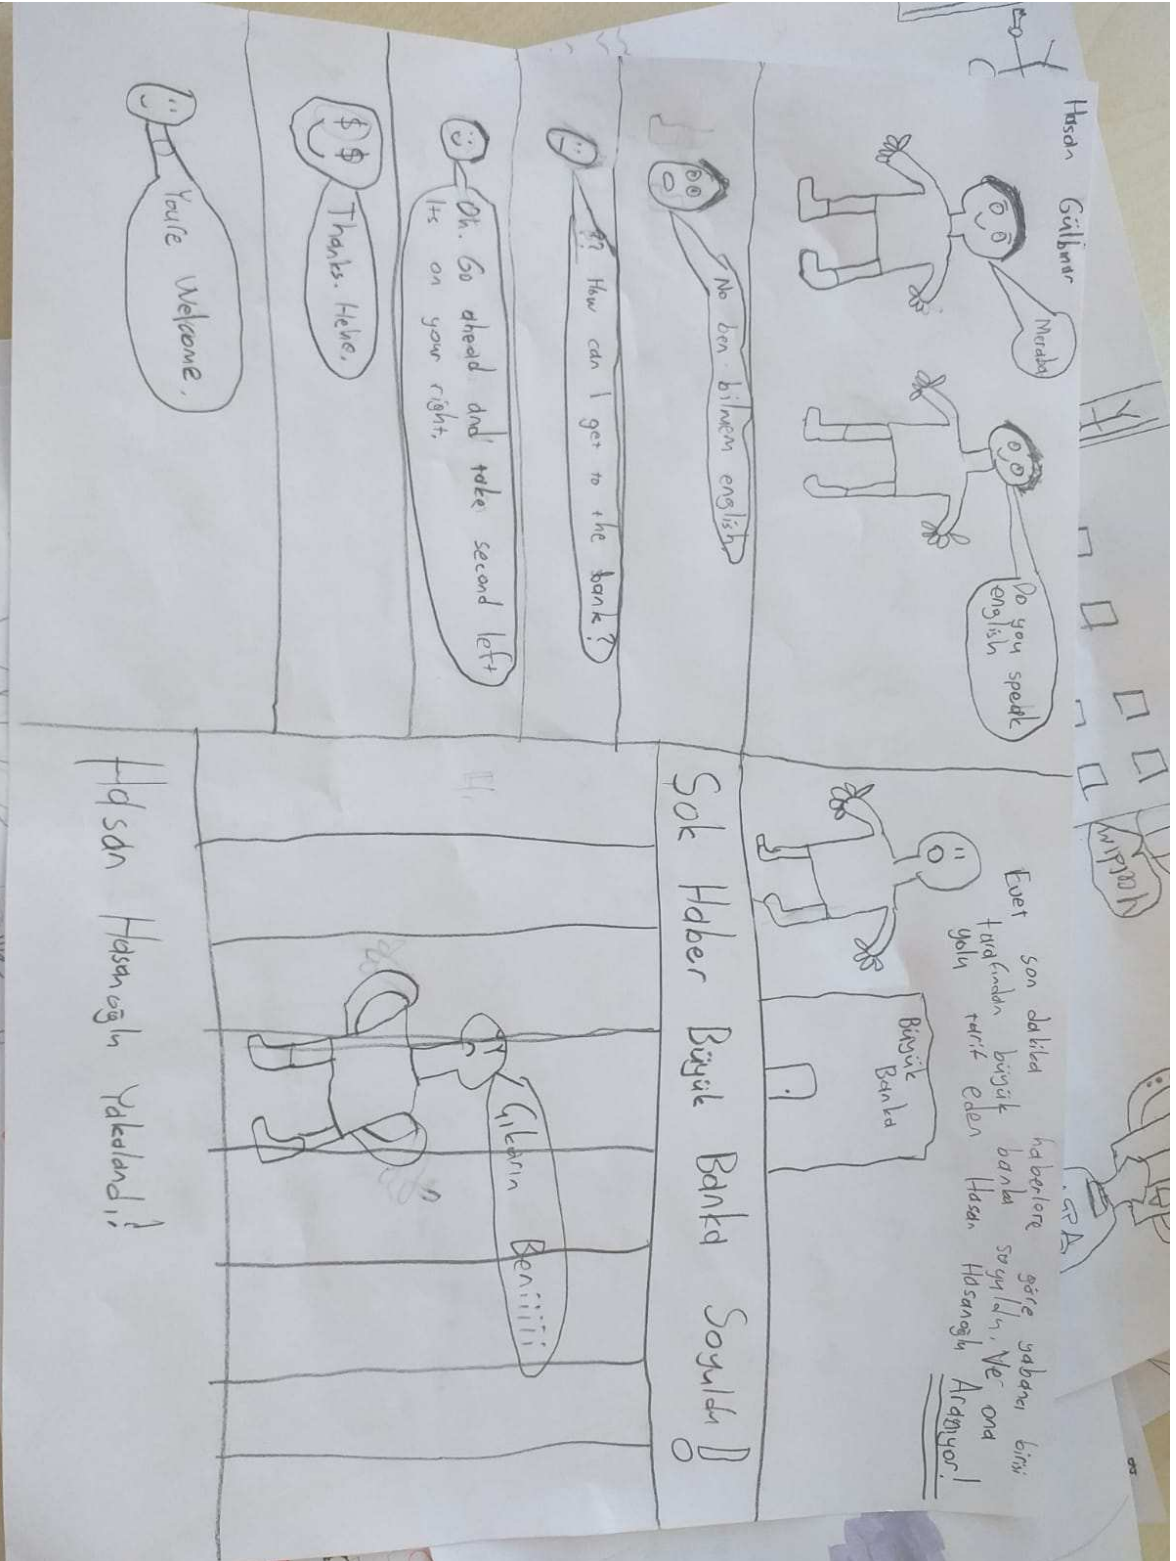 Hasan Gülbinar
Meraba
Do you speak
english
No ben bilmem english
?? How can I get to the bank?
Oh. Go ahead and take second left
Its on your right.
Thanks. Hehe.
Youre Welcome.
Evet son dakika haberlere göre yabancı birisi
tarafından büyük banka soyuldu. Ve ona
yolu tarif eden Hasan Hasanoğlu Aranıyor!
Büyük
Banka
Şok Haber Büyük Banka Soyuldu!
Çıkarın Beniiiiii
Hasan Hasanoğlu Yakalandı!
GPA